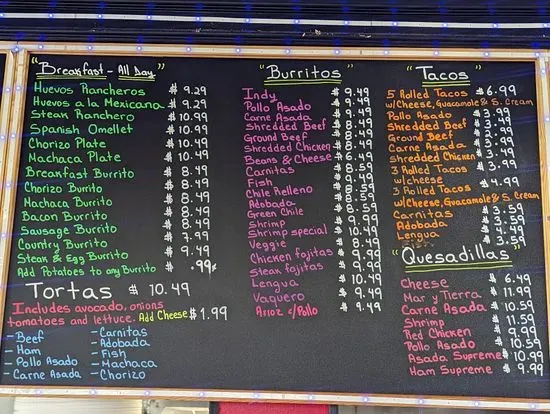 "Breakfast - All Day"
Huevos Rancheros $ 9.29
Huevos a la Mexicana $ 9.29
Steak Ranchero $ 10.99
Spanish Omellet $ 10.99
Chorizo Plate $ 10.49
Machaca Plate $ 10.49
Breakfast Burrito $ 8.49
Chorizo Burrito $ 8.49
Machaca Burrito $ 8.49
Bacon Burrito $ 8.49
Sausage Burrito $ 8.49
Country Burrito $ 7.99
Steak & Egg Burrito $ 9.49
Add Potatoes to any Burrito $ .99¢
Tortas $ 10.49
Includes avocado, onions
tomatoes and lettuce. Add Cheese $ 1.99
- Beef
- Ham
- Pollo Asado
- Carne Asada
- Carnitas
- Adobada
- Fish
- Machaca
- Chorizo
"Burritos"
Indy $ 9.49
Pollo Asado $ 9.49
Carne Asada $ 9.49
Shredded Beef $ 8.49
Ground Beef $ 8.49
Shredded Chicken $ 8.49
Beans & Cheese $ 6.49
Carnitas $ 8.49
Fish $ 8.49
Chile Relleno $ 8.59
Adobada $ 8.59
Green Chile $ 8.59
Shrimp $ 9.49
Shrimp special $ 10.49
Veggie $ 8.49
Chicken fajitas $ 9.49
Steak fajitas $ 9.49
Lengua $ 10.49
Vaquero $ 9.49
Arroz c/Pollo $ 9.59
"Tacos"
5 Rolled Tacos $ 6.99
w/Cheese, Guacamole & S. Cream
Pollo Asado $ 3.99
Shredded Beef
Ground Beef
Carne Asada
Shredded Chicken
3 Rolled Tacos $ 3.99
w/cheese
3 Rolled Tacos $ 4.99
w/Cheese, Guacamole & S. Cream
Carnitas $ 3.59
Adobada $ 3.59
Lengua $ 4.59
$ 3.59
"Quesadillas"
Cheese $ 6.49
Mar y Tierra $ 11.99
Carne Asada $ 10.59
Shrimp $ 11.59
Red Chicken $ 9.99
Pollo Asado $ 10.59
Asada Supreme $ 10.99
Ham Supreme $ 9.99